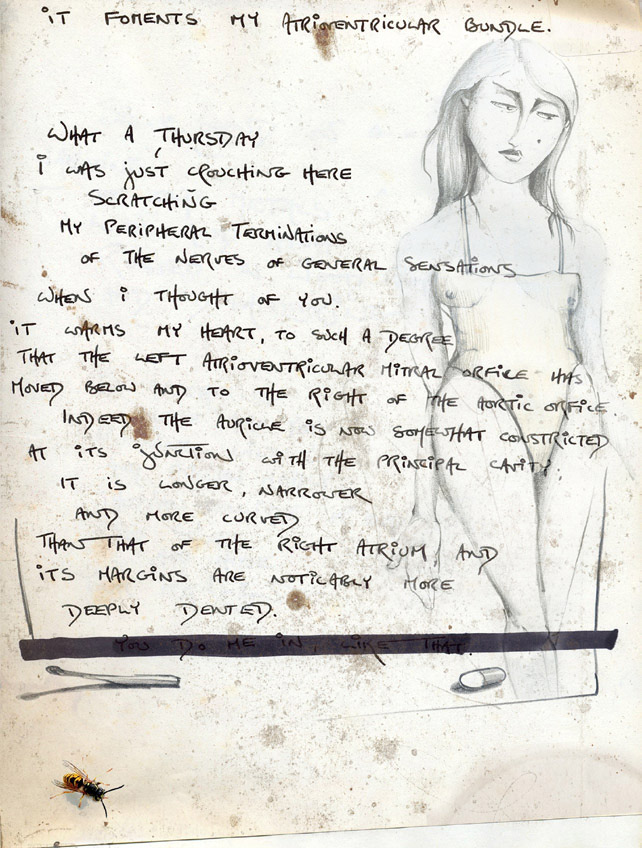 iT FOMENTS MY ATRIOVENTRICULAR BUNDLE.
WHAT A THURSDAY
i WAS jUST CROUCHING HERE
SCRATCHING
MY PERIPHERAL TERMINATIONS
OF THE NERVES OF GENERAL SENSATIONS
WHEN i THOUGHT OF YOU.
iT WARMS MY HEART, TO SUCH A DEGREE
THAT THE LEFT ATRIOVENTRICULAR MITRAL ORFICE HAS
MOVED BELOW AND TO THE RIGHT OF THE AORTIC ORFICE
INDEED THE AURICLE iS NOW SOMEWHAT CONSTRICTED
AT iTS jUNCTION WITH THE PRINCIPAL CAVITY.
IT iS LONGER, NARROWER
AND MORE CURVED
THAN THAT OF THE RIGHT ATRIUM, AND
iTS MARGINS ARE NOTICABLY MORE
DEEPLY DENTED.
YOU DO ME IN, LIKE THAT.